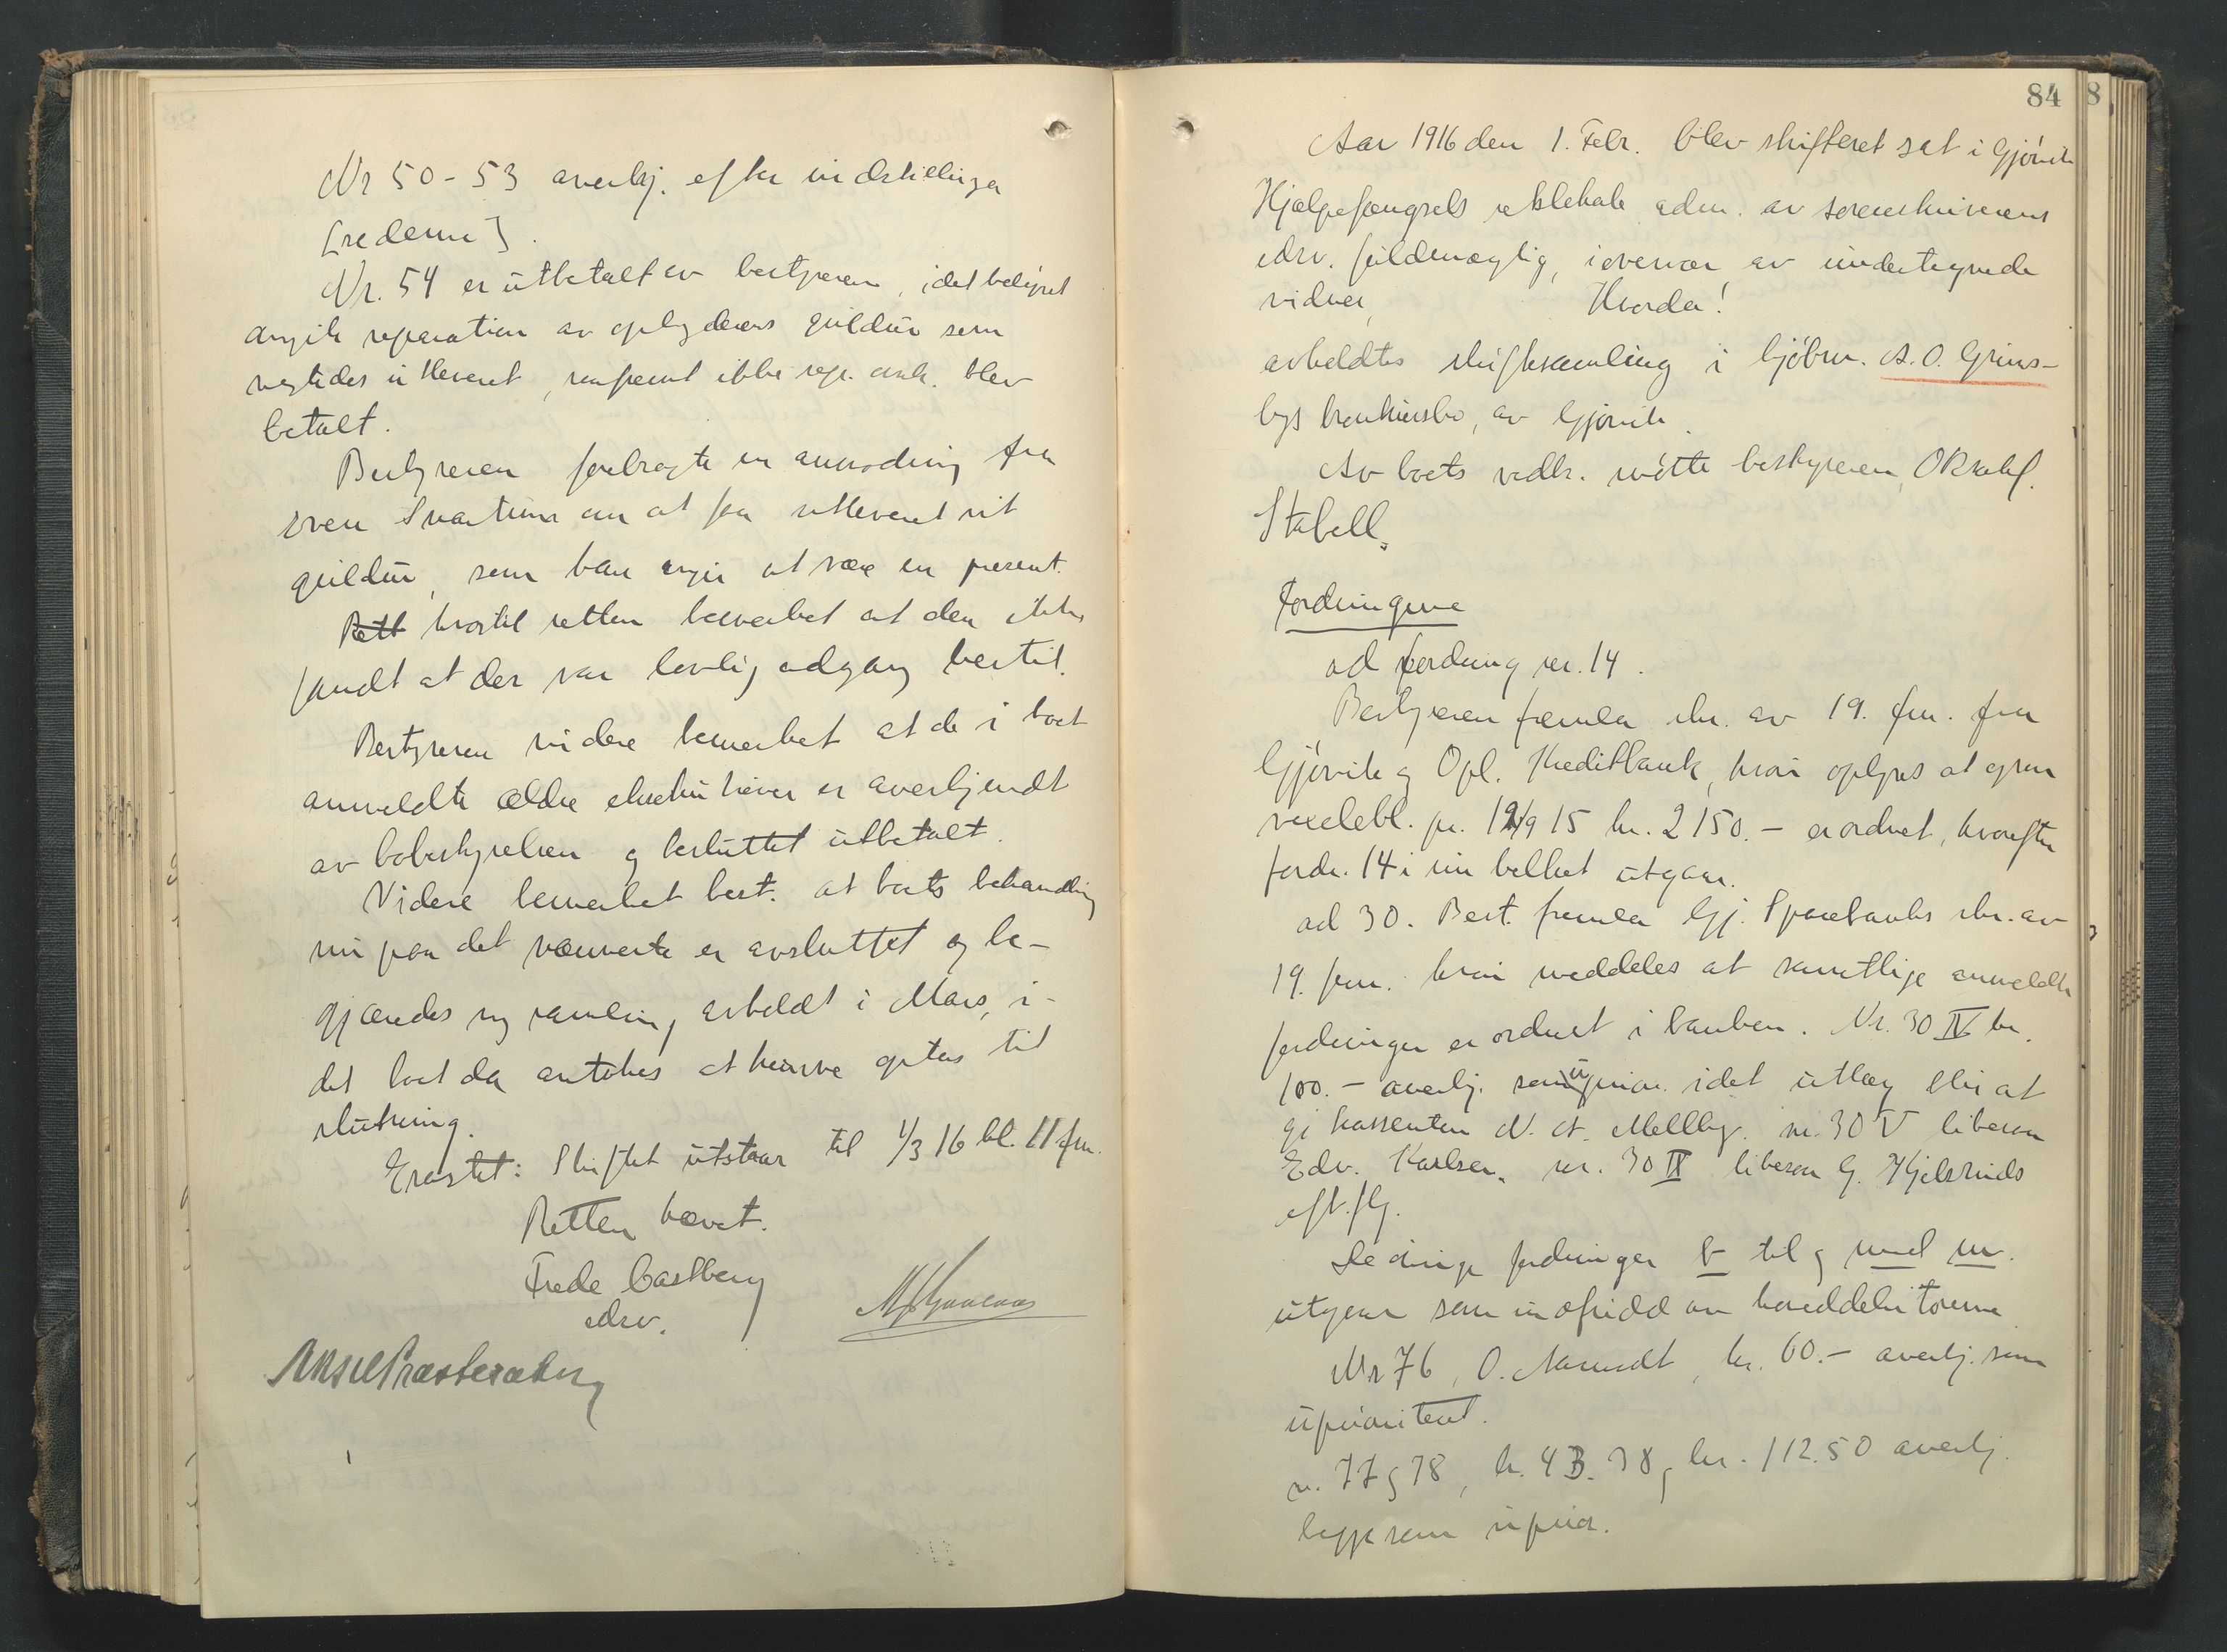 Nr 50-53 averkj. efter indstillingen
[rederne].
Nr. 54 er utbetalt av bestyreren, idet beløpet
angik reparation av opbyderens guldur som
negtedes utleveret, senfremt ikke rep. omk. blev
betalt.
Bestyreren forebragte en anmodning fra
Sven Svartum om at faa utleveret sit
guldur, som han angir at være en present.
Rett hvortil retten bemerket at den ikke
fandt at der var lovlig adgang hertil.
Bestyreren videre bemerket at de i boet
anmeldte ældre eksekutiver er averkjendt
av bobestyrelsen og besluttet utbetalt.
Videre bemerket best. at boets behandling
nu paa det nærmeste er avsluttet og be-
gjæredes ny samling avholdt i Mars, i-
det boet da antokes at kunne optas til
slutning.
Eragtet: Skiftet utstaar til 1/3 16 kl. 11 fm.
Retten hævet.
Frede Castberg
edsv.
Aksel Præsteseter
84
8
Aar 1916 den 1. Febr. blev skifteret sat i Gjøvik
Hjælpefængsels retslokale adm. av sorenskriverens
edsv. fuldmægtig, i overvær av undertegnede
vidner, Hvorda!
avholdtes skiftesamling i kjøbm. A. O. Grims-
bys konkursbo, av Gjøvik.
Av boets vedk. møtte bestyreren, O.R.sakf.
Stabell.
Fordringene
ad fordring nr. 14.
Bestyreren fremla skr. av 19. f.m. fra
Gjøvik og Opl. Kreditbank, hvori oplyses at
vexelobl. pr. 12/9 15 kr. 2150.- er ordnet, hvorefter
fordr. 14 i sin helhet utgaar.
ad 30. Best. fremla Gj. Sparebanks skr. av
19. f.m. hvori meddeles at samtlige anmeldte
fordringer er ordnet i banken. Nr. 30 IV kr.
100.- averkj. som uprior. idet utlæg blir at
gi kassenten N. A. Mellby. nr. 30 V likesom
Edv. Karlsen. nr. 30 II likesom G. Hjelsruds
eft.flg.
De øvrige fordringer b til og med m.
utgaar som indfridd av hoveddebitorerne.
Nr 76, O. Narmodt, kr. 60.- averkj. som
uprioritert.
nr. 77 og 78, kr. 43.38 og kr. 112.50 averkj.
begge som uprior.